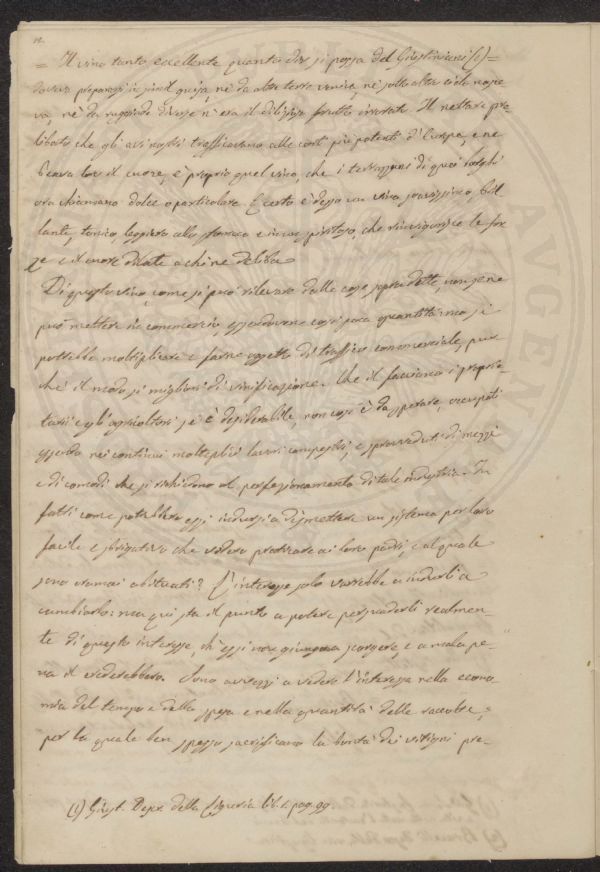 = Il vino tanto eccellente quanto dir si possa del Giustiniani (1) =
da altre terre veniva, nè sotto altro cielo nasce
va, nè da rugiade diverse n'era il delizioso frutto irrorato. Il nettare pre-
libato che gli avi nostri trafficavano alle corti più potenti d'Europa, e ne
beava loro il cuore, è proprio quel vino, che i terrazzani di quei luoghi
ora chiamano dolce o particolare. E certo è desso un vino squisitissimo, bril
lante, tonico, leggiero allo stomaco e spiritoso, che rinvigorisce le for
ze e il cuore dilata a chi ne deliba
Di questo vino, come si può rilevare dalle cose sopra dette, non se ne
può mettere in commercio, essendovene così poca quantità: ma si
potrebbe moltiplicare e farne oggetto di traffico commerciale, pur
chè il modo si migliori di vinificazione. Che il facciano i proprie-
tarii e gli agricoltori se è desiderabile, non così è da sperare, occupati
essendo nei continui molteplici lavori campestri, e sprovveduti di mezzi
e di comodi che si richiedono al perfezionamento di tale industria. In
fatti come potrebbero essi indursi a dismettere un sistema per loro
facile e sbrigativo che videro praticare ai loro padri, e al quale
sono oramai abituati? L'interesse solo varrebbe a indurli a
cambiarlo: ma qui sta il punto a potere persuaderli realmen-
te di questo interesse, ch'essi non giungono a scorgere, e a mala pe-
na il crederebbero. Sono avvezzi a vedere l'interesse nella econo-
mia del tempo e della spesa e nella quantità delle raccolte,
per la quale ben spesso sacrificano la bontà dei vitigni pre-
(1) Giust. Descr. della Liguria lib. 1. pag. 99.